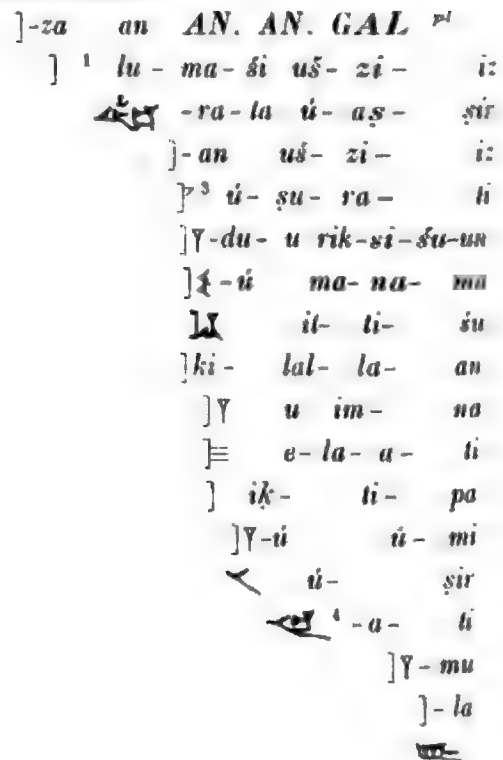 ]-za an AN. AN. GAL pl
] 1 lu - ma - ši uš - zi - iz
2 -ra - la ú - aṣ - ṣir
]-an uš - zi - iz
] 3 ú - ṣu - ra - ti
]𒁹-du - u rik-si-šu-un
]-ú ma - na - ma
it - ti - šu
]ki - lal - la - an
]𒁹 u im - na
] e - la - a - ti
] iḳ - ti - pa
]𒁹-ú ú - mi
ú - ṣir
4 - a - ti
]𒁹 - mu
] - la